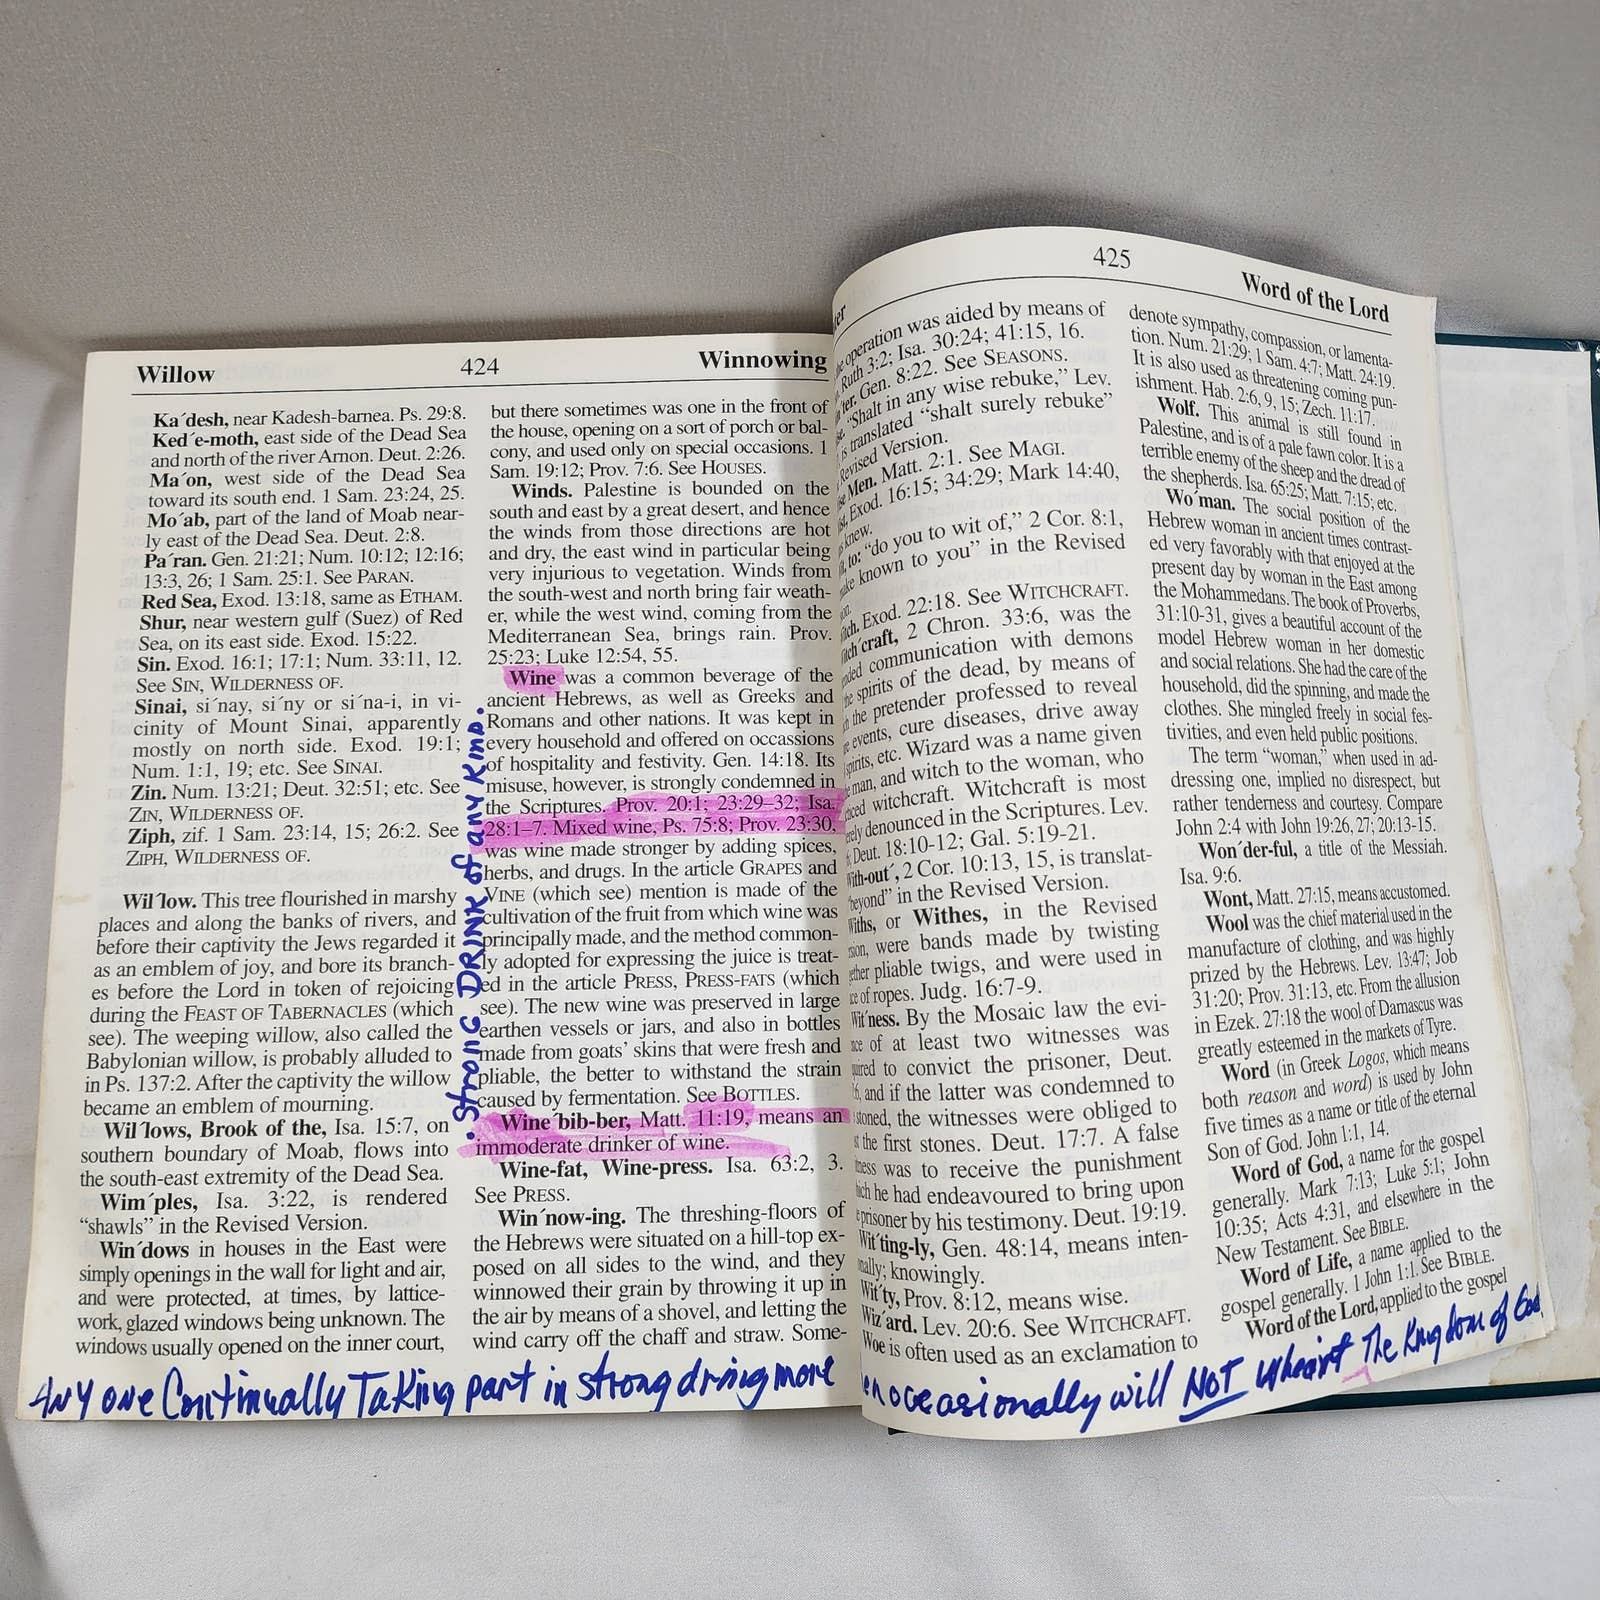 Willow 424 Winnowing
Ka´desh, near Kadesh-barnea. Ps. 29:8.
Ked´e-moth, east side of the Dead Sea
and north of the river Arnon. Deut. 2:26.
Ma´on, west side of the Dead Sea
toward its south end. 1 Sam. 23:24, 25.
Mo´ab, part of the land of Moab near-
ly east of the Dead Sea. Deut. 2:8.
Pa´ran. Gen. 21:21; Num. 10:12; 12:16;
13:3, 26; 1 Sam. 25:1. See PARAN.
Red Sea, Exod. 13:18, same as ETHAM.
Shur, near western gulf (Suez) of Red
Sea, on its east side. Exod. 15:22.
Sin. Exod. 16:1; 17:1; Num. 33:11, 12.
See SIN, WILDERNESS OF.
Sinai, si´nay, si´ny or si´na-i, in vi-
cinity of Mount Sinai, apparently
mostly on north side. Exod. 19:1;
Num. 1:1, 19; etc. See SINAI.
Zin. Num. 13:21; Deut. 32:51; etc. See
ZIN, WILDERNESS OF.
Ziph, zif. 1 Sam. 23:14, 15; 26:2. See
ZIPH, WILDERNESS OF.
Wil´low. This tree flourished in marshy
places and along the banks of rivers, and
before their captivity the Jews regarded it
as an emblem of joy, and bore its branch-
es before the Lord in token of rejoicing
during the FEAST OF TABERNACLES (which
see). The weeping willow, also called the
Babylonian willow, is probably alluded to
in Ps. 137:2. After the captivity the willow
became an emblem of mourning.
Wil´lows, Brook of the, Isa. 15:7, on
southern boundary of Moab, flows into
the south-east extremity of the Dead Sea.
Wim´ples, Isa. 3:22, is rendered
“shawls” in the Revised Version.
Win´dows in houses in the East were
simply openings in the wall for light and air,
and were protected, at times, by lattice-
work, glazed windows being unknown. The
windows usually opened on the inner court,
. STRONG DRINK of any Kind.
but there sometimes was one in the front of
the house, opening on a sort of porch or bal-
cony, and used only on special occasions. 1
Sam. 19:12; Prov. 7:6. See HOUSES.
Winds. Palestine is bounded on the
south and east by a great desert, and hence
the winds from those directions are hot
and dry, the east wind in particular being
very injurious to vegetation. Winds from
the south-west and north bring fair weath-
er, while the west wind, coming from the
Mediterranean Sea, brings rain. Prov.
25:23; Luke 12:54, 55.
Wine was a common beverage of the
ancient Hebrews, as well as Greeks and
Romans and other nations. It was kept in
every household and offered on occassions
of hospitality and festivity. Gen. 14:18. Its
misuse, however, is strongly condemned in
the Scriptures. Prov. 20:1; 23:29–32; Isa.
28:1–7. Mixed wine, Ps. 75:8; Prov. 23:30,
was wine made stronger by adding spices,
herbs, and drugs. In the article GRAPES and
VINE (which see) mention is made of the
cultivation of the fruit from which wine was
principally made, and the method common-
ly adopted for expressing the juice is treat-
ed in the article PRESS, PRESS-FATS (which
see). The new wine was preserved in large
earthen vessels or jars, and also in bottles
made from goats’ skins that were fresh and
pliable, the better to withstand the strain
caused by fermentation. See BOTTLES.
Wine´bib-ber, Matt. 11:19, means an
immoderate drinker of wine.
Wine-fat, Wine-press. Isa. 63:2, 3.
See PRESS.
Win´now-ing. The threshing-floors of
the Hebrews were situated on a hill-top ex-
posed on all sides to the wind, and they
winnowed their grain by throwing it up in
the air by means of a shovel, and letting the
wind carry off the chaff and straw. Some-
ANY one Continually Taking part in strong dring more
425 Word of the Lord
operation was aided by means of
Ruth 3:2; Isa. 30:24; 41:15, 16.
Gen. 8:22. See SEASONS.
“Shalt in any wise rebuke,” Lev.
is translated “shalt surely rebuke”
Revised Version.
Men. Matt. 2:1. See MAGI.
Exod. 16:15; 34:29; Mark 14:40,
knew.
to: “do you to wit of,” 2 Cor. 8:1,
known to you” in the Revised
Exod. 22:18. See WITCHCRAFT.
craft, 2 Chron. 33:6, was the
communication with demons
spirits of the dead, by means of
the pretender professed to reveal
events, cure diseases, drive away
spirits, etc. Wizard was a name given
man, and witch to the woman, who
witchcraft. Witchcraft is most
denounced in the Scriptures. Lev.
Deut. 18:10-12; Gal. 5:19-21.
With-out´, 2 Cor. 10:13, 15, is translat-
“beyond” in the Revised Version.
Withs, or Withes, in the Revised
were bands made by twisting
pliable twigs, and were used in
of ropes. Judg. 16:7-9.
Wit´ness. By the Mosaic law the evi-
of at least two witnesses was
to convict the prisoner, Deut.
and if the latter was condemned to
stoned, the witnesses were obliged to
the first stones. Deut. 17:7. A false
was to receive the punishment
he had endeavoured to bring upon
prisoner by his testimony. Deut. 19:19.
Wit´ting-ly, Gen. 48:14, means inten-
knowingly.
Wit´ty, Prov. 8:12, means wise.
Wiz´ard. Lev. 20:6. See WITCHCRAFT.
Woe is often used as an exclamation to
denote sympathy, compassion, or lamenta-
tion. Num. 21:29; 1 Sam. 4:7; Matt. 24:19.
It is also used as threatening coming pun-
ishment. Hab. 2:6, 9, 15; Zech. 11:17.
Wolf. This animal is still found in
Palestine, and is of a pale fawn color. It is a
terrible enemy of the sheep and the dread of
the shepherds. Isa. 65:25; Matt. 7:15; etc.
Wo´man. The social position of the
Hebrew woman in ancient times contrast-
ed very favorably with that enjoyed at the
present day by woman in the East among
the Mohammedans. The book of Proverbs,
31:10-31, gives a beautiful account of the
model Hebrew woman in her domestic
and social relations. She had the care of the
household, did the spinning, and made the
clothes. She mingled freely in social fes-
tivities, and even held public positions.
The term “woman,” when used in ad-
dressing one, implied no disrespect, but
rather tenderness and courtesy. Compare
John 2:4 with John 19:26, 27; 20:13-15.
Won´der-ful, a title of the Messiah.
Isa. 9:6.
Wont, Matt. 27:15, means accustomed.
Wool was the chief material used in the
manufacture of clothing, and was highly
prized by the Hebrews. Lev. 13:47; Job
31:20; Prov. 31:13, etc. From the allusion
in Ezek. 27:18 the wool of Damascus was
greatly esteemed in the markets of Tyre.
Word (in Greek Logos, which means
both reason and word) is used by John
five times as a name or title of the eternal
Son of God. John 1:1, 14.
Word of God, a name for the gospel
generally. Mark 7:13; Luke 5:1; John
10:35; Acts 4:31, and elsewhere in the
New Testament. See BIBLE.
Word of Life, a name applied to the
gospel generally. 1 John 1:1. See BIBLE.
Word of the Lord, applied to the gospel
occasionally will NOT The Kingdom of God.